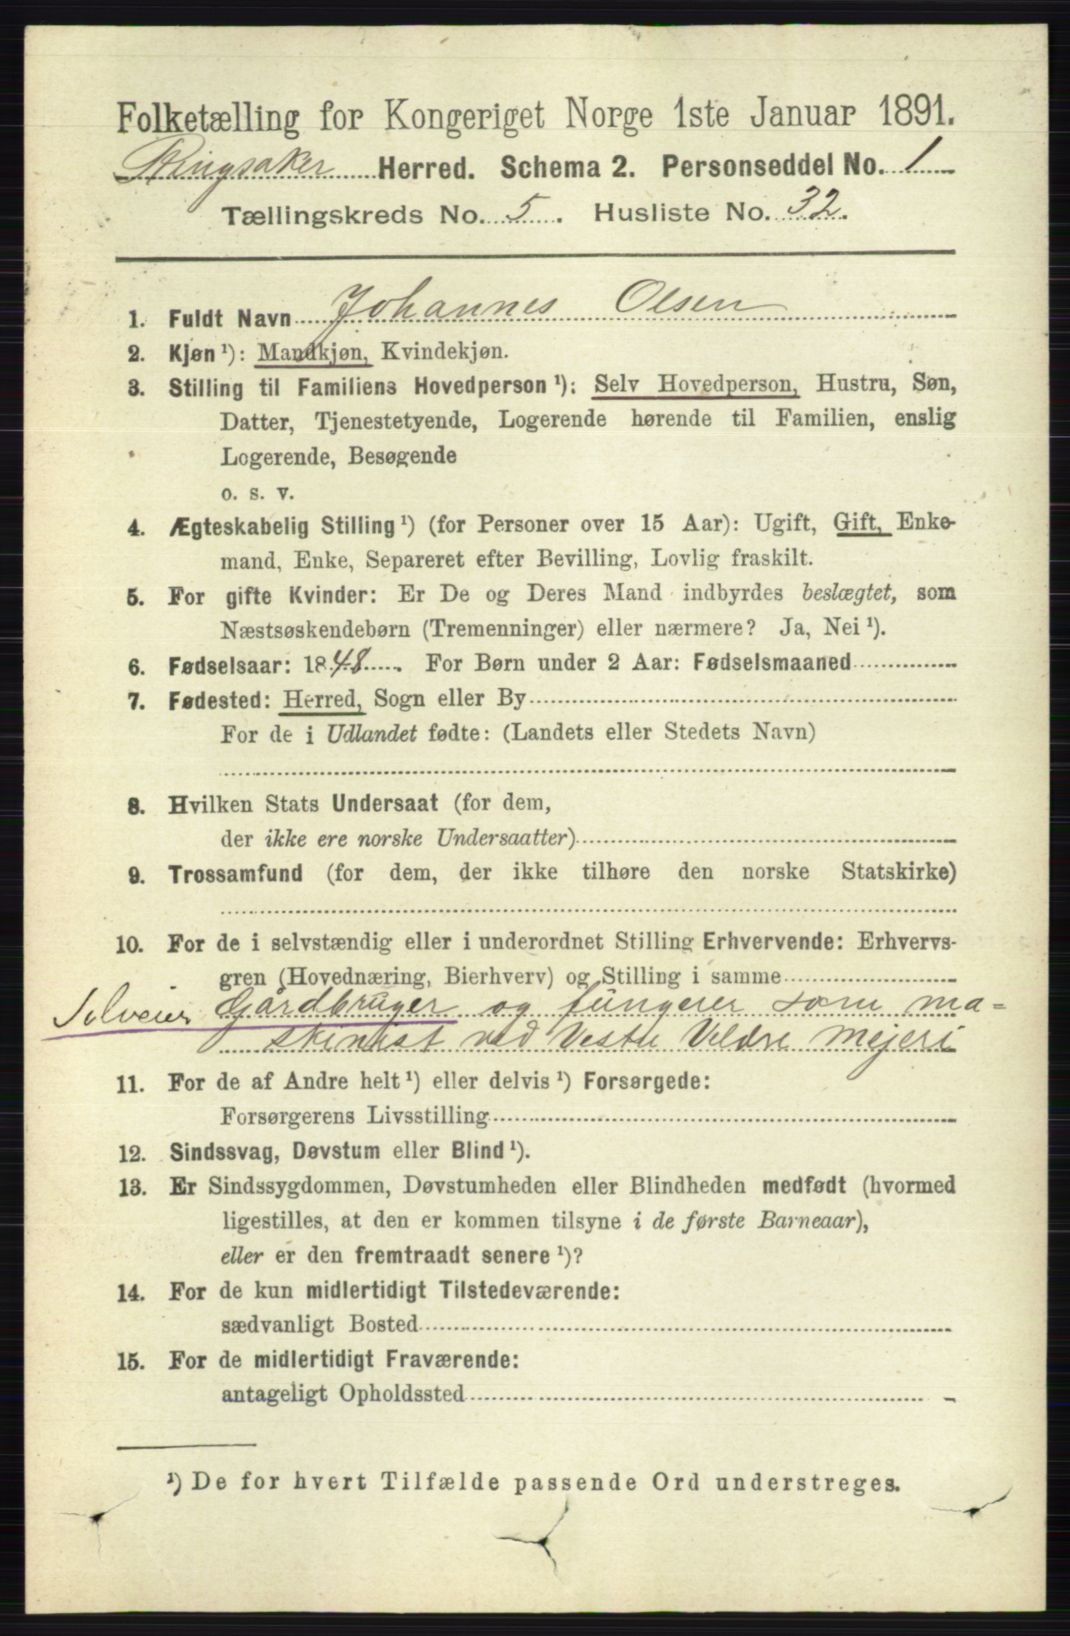 Folketælling for Kongeriget Norge 1ste Januar 1891.
Ringsaker Herred. Schema 2. Personseddel No. 1
Tællingskreds No. 5. Husliste No. 32.
1. Fuldt Navn Johannes Olsen
2. Kjøn ¹): Mandkjøn, Kvindekjøn.
3. Stilling til Familiens Hovedperson ¹): Selv Hovedperson, Hustru, Søn,
Datter, Tjenestetyende, Logerende hørende til Familien, enslig
Logerende, Besøgende
o. s. v.
4. Ægteskabelig Stilling ¹) (for Personer over 15 Aar): Ugift, Gift, Enke-
mand, Enke, Separeret efter Bevilling, Lovlig fraskilt.
5. For gifte Kvinder: Er De og Deres Mand indbyrdes beslægtet, som
Næstsøskendebørn (Tremenninger) eller nærmere? Ja, Nei ¹).
6. Fødselsaar: 1848. For Børn under 2 Aar: Fødselsmaaned
7. Fødested: Herred, Sogn eller By
For de i Udlandet fødte: (Landets eller Stedets Navn)
8. Hvilken Stats Undersaat (for dem,
der ikke ere norske Undersaatter)
9. Trossamfund (for dem, der ikke tilhøre den norske Statskirke)
10. For de i selvstændig eller i underordnet Stilling Erhvervende: Erhvervs-
gren (Hovednæring, Bierhverv) og Stilling i samme
Selveier Gårdbruger og fungerer som ma-
skinist ved Vestre Veldre mejeri
11. For de af Andre helt ¹) eller delvis ¹) Forsørgede:
Forsørgerens Livsstilling
12. Sindssvag, Døvstum eller Blind ¹).
13. Er Sindssygdommen, Døvstumheden eller Blindheden medfødt (hvormed
ligestilles, at den er kommen tilsyne i de første Barneaar),
eller er den fremtraadt senere ¹)?
14. For de kun midlertidigt Tilstedeværende:
sædvanligt Bosted
15. For de midlertidigt Fraværende:
antageligt Opholdssted
¹) De for hvert Tilfælde passende Ord understreges.